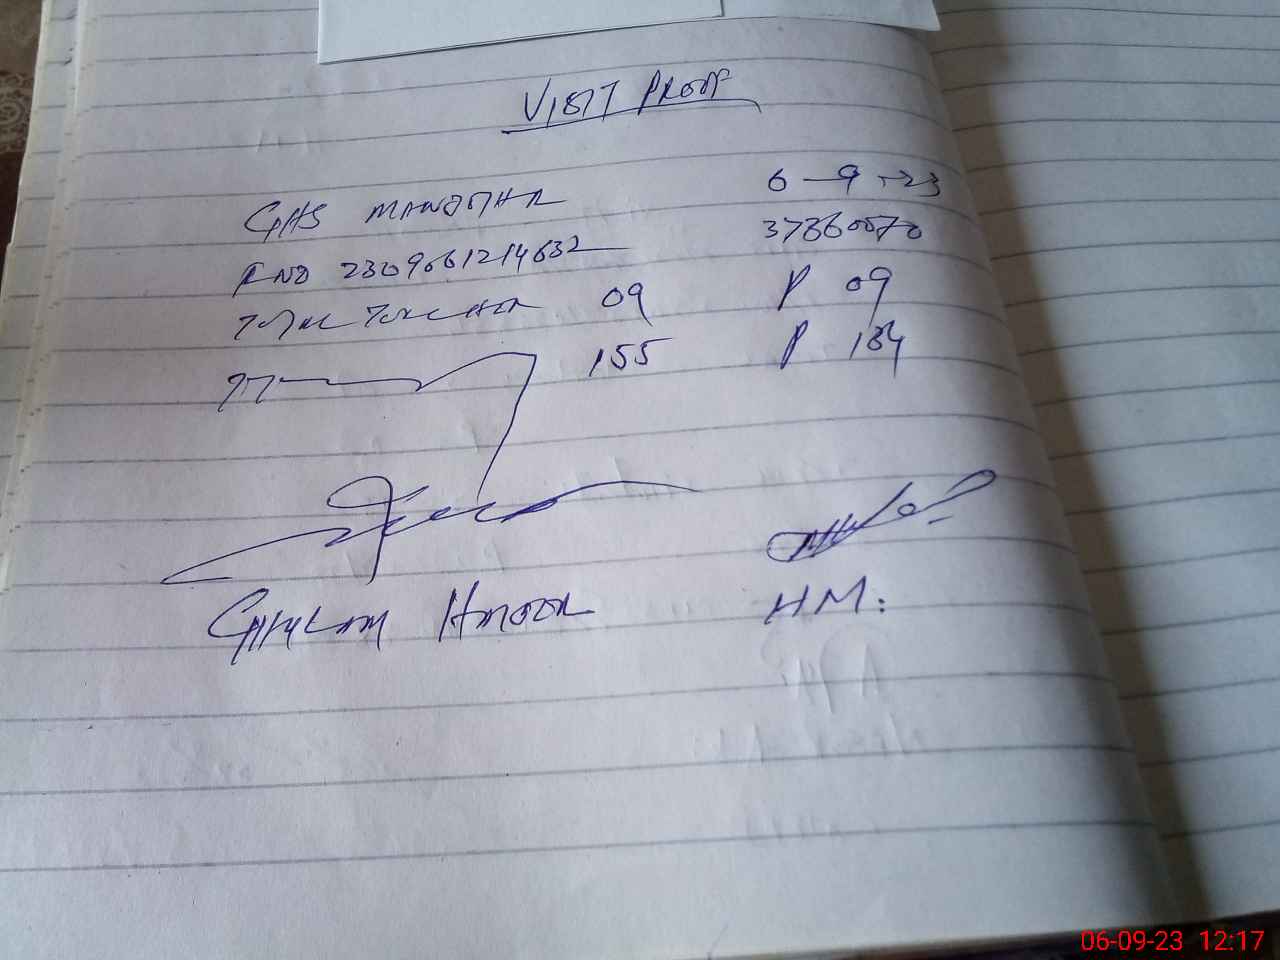 VISIT PROOF
GHS 6-9-23
2309061214632 37360070
TOTAL TEACHER 09 P 09
155 P 134
GHULAM
HM:
06-09-23 12:17